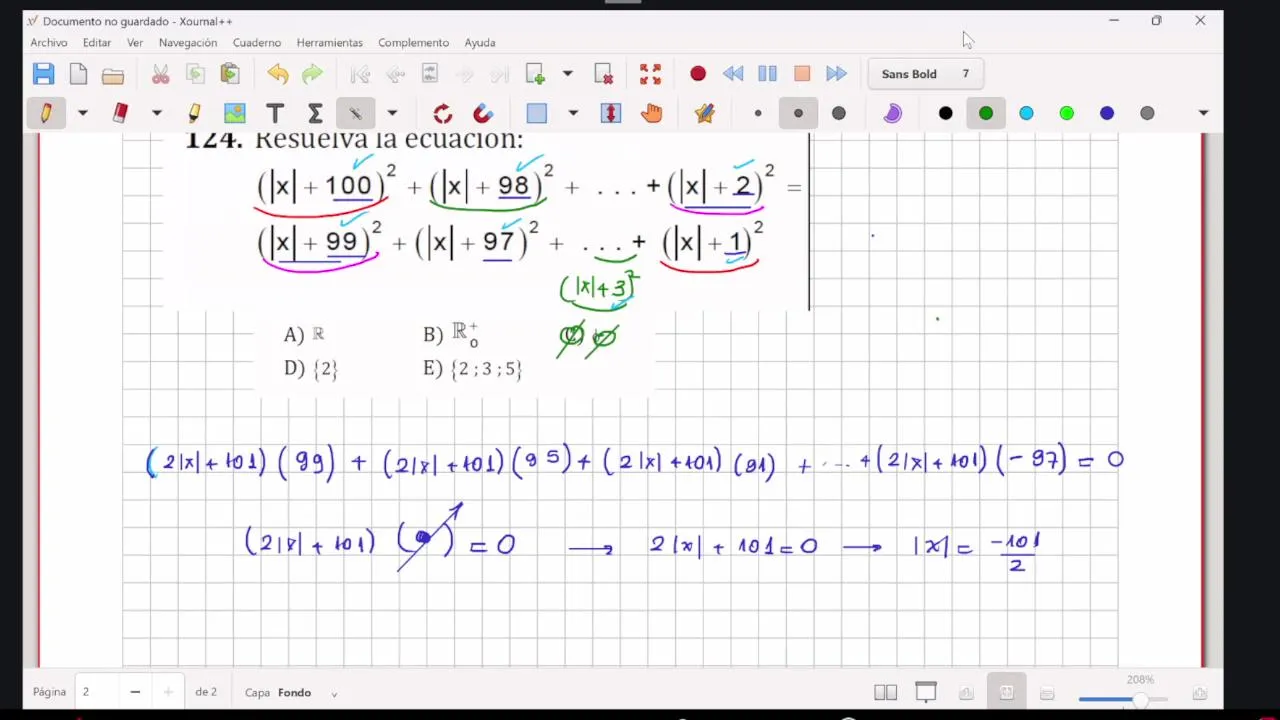 Documento no guardado - Xournal++
Archivo Editar Ver Navegación Cuaderno Herramientas Complemento Ayuda
Sans Bold 7
124. Resuelva la ecuación:
(|x| + 100)² + (|x| + 98)² + . . . + (|x| + 2)² =
(|x| + 99)² + (|x| + 97)² + . . . + (|x| + 1)²
(|x|+3)²
A) ℝ B) ℝ₀⁺
D) {2} E) {2 ; 3 ; 5}
(2|x|+101)(99) + (2|x|+101)(95) + (2|x|+101)(91) + ... + (2|x|+101)(-97) = 0
(2|x|+101) ( ) = 0 → 2|x| + 101 = 0 → |x| = -101/2
Página 2 de 2 Capa Fondo 208%